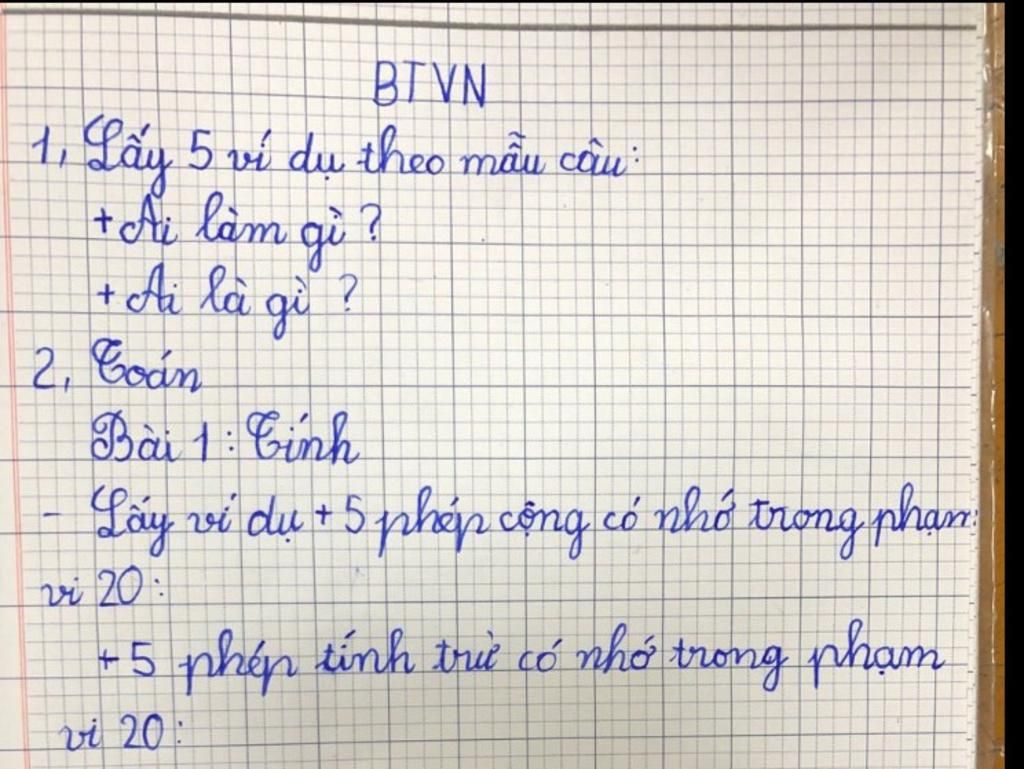 BTVN
1, Lấy 5 ví dụ theo mẫu câu:
+ Ai làm gì ?
+ Ai là gì ?
2, Toán
Bài 1 : Tính
- Lấy ví dụ + 5 phép cộng có nhớ trong phạm
vi 20 :
+ 5 phép tính trừ có nhớ trong phạm
vi 20 :